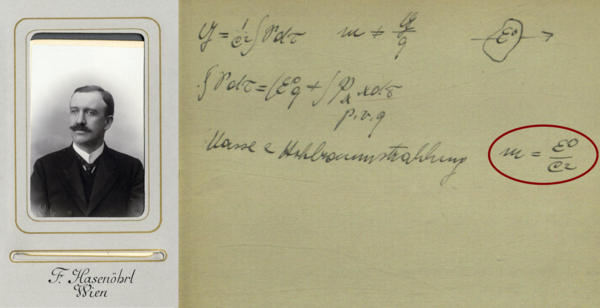 F. Hasenöhrl
Wien
y = 1/c² ∫ P dτ m ≠ y/q E⁰ →
∫ P dτ = (E⁰q + ∫ pₓ x dτ
p.v.q
Masse e Hohlraumstrahlung m = E⁰/c²